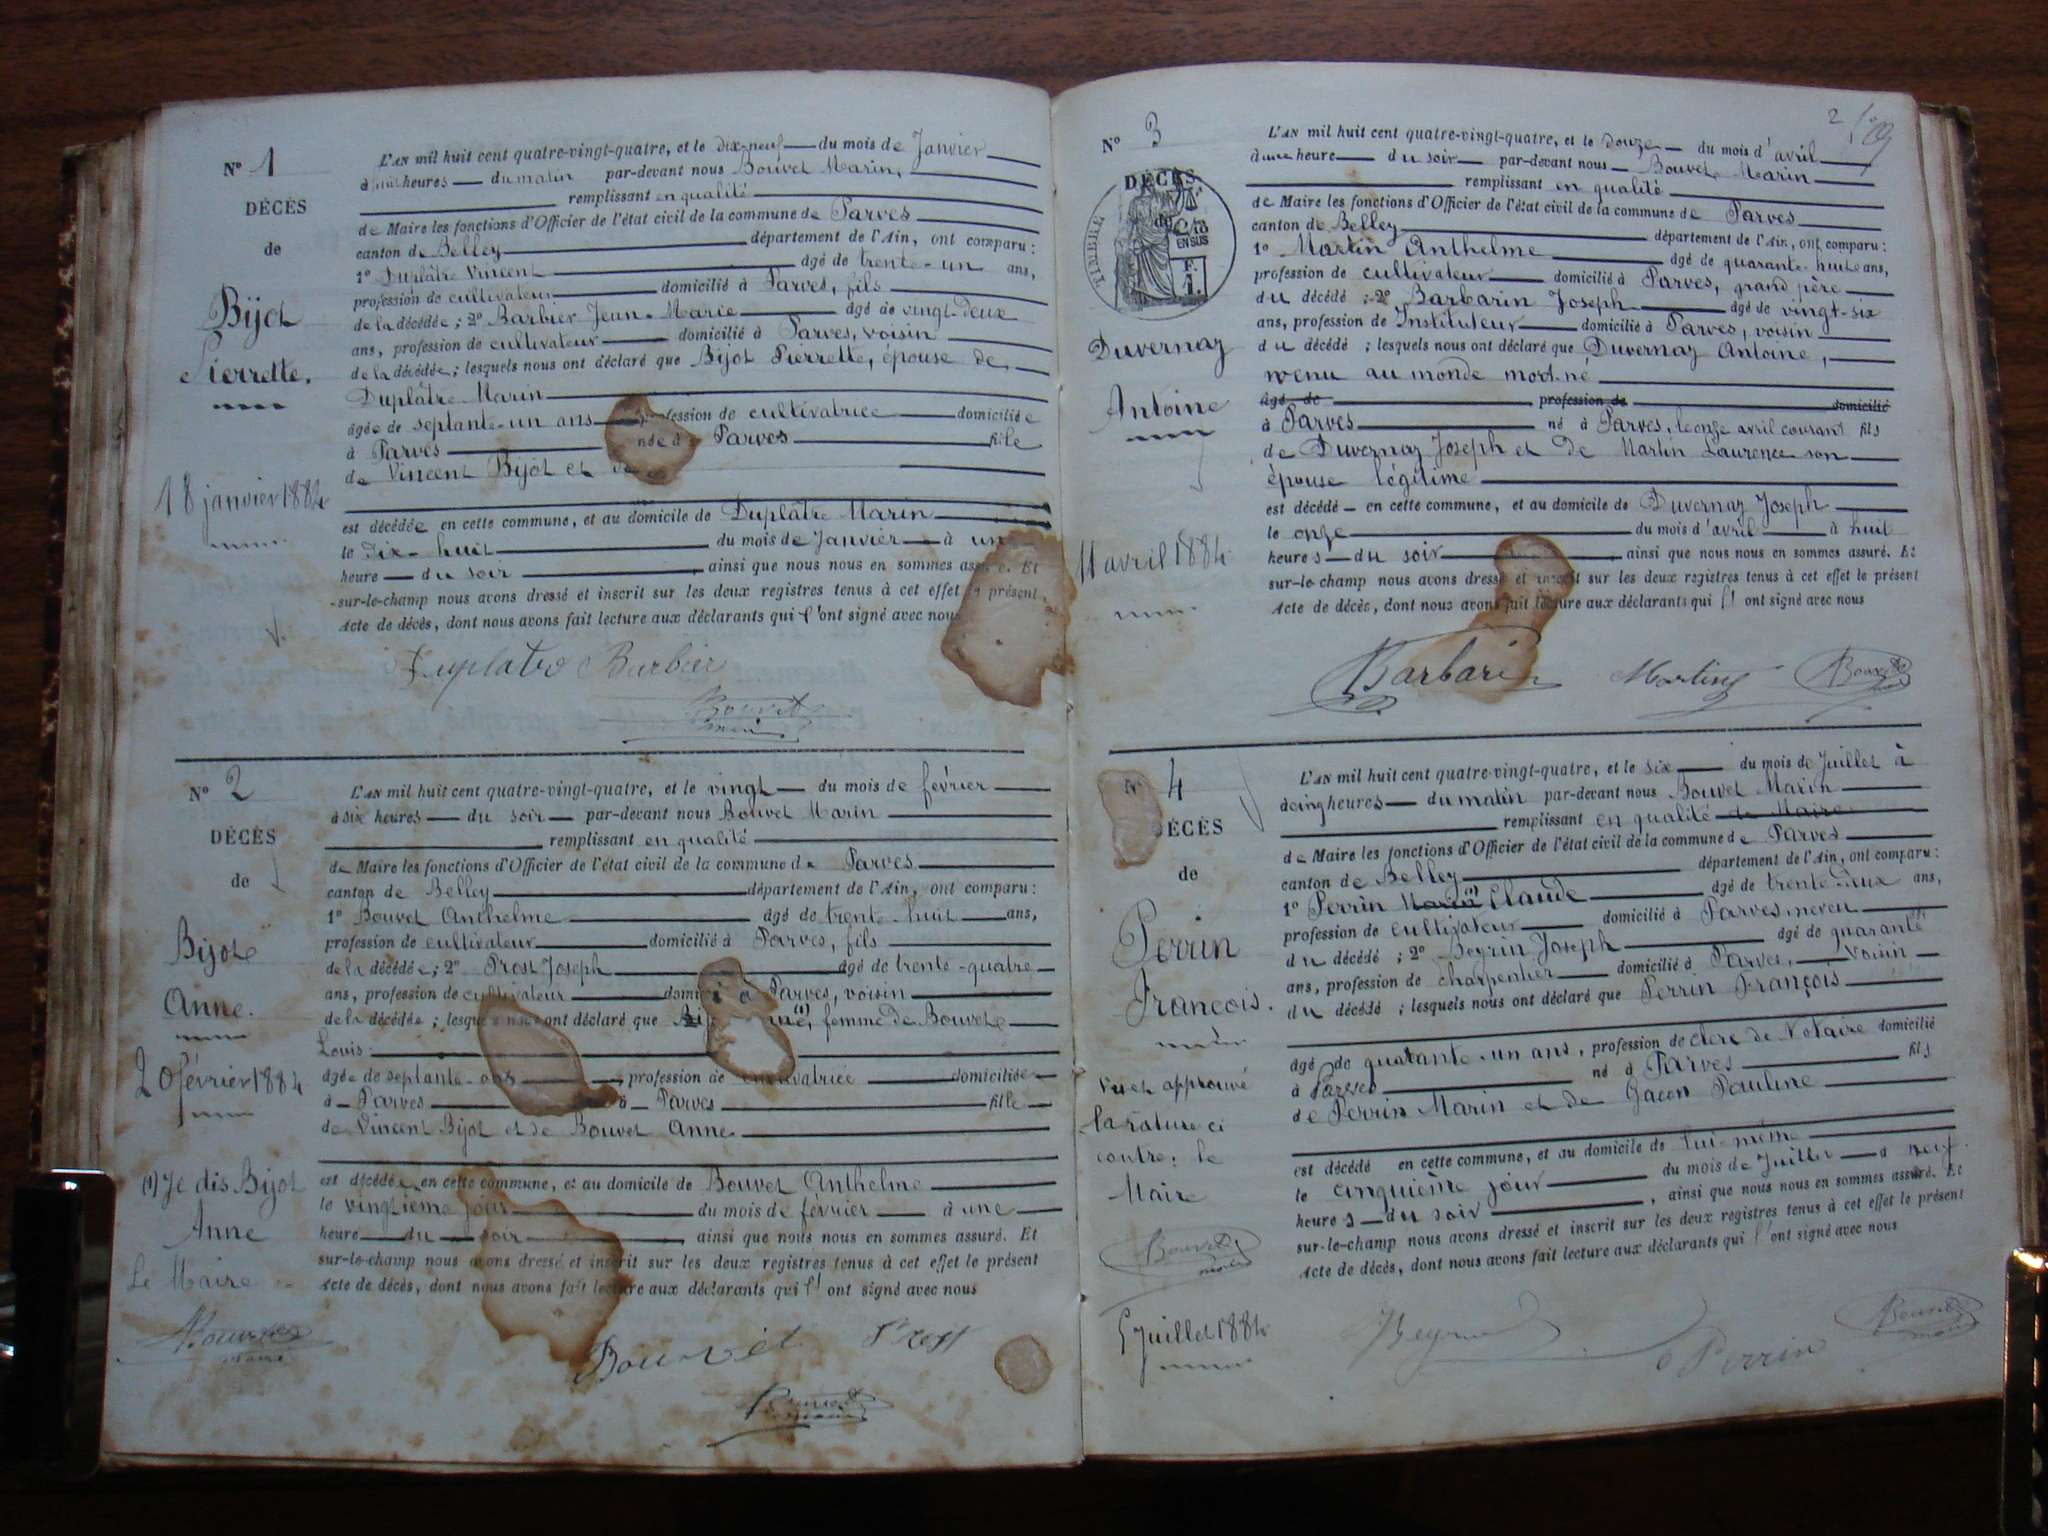 N° 1
DÉCÈS
de
Bijot
Pierrette.
18 janvier 1884
L'AN mil huit cent quatre-vingt-quatre, et le dix-neuf du mois de Janvier
heures du matin par-devant nous Bouvet Marin,
remplissant en qualité
de Maire les fonctions d'Officier de l'état civil de la commune de Parves
canton de Belley département de l'Ain, ont comparu :
1° Duplâtre Vincent âgé de trente-un ans,
profession de cultivateur domicilié à Parves, fils
de la décédée ; 2° Barbier Jean-Marie âgé de vingt-deux
ans, profession de cultivateur domicilié à Parves, voisin
de la décédée ; lesquels nous ont déclaré que Bijot Pierrette, épouse de
Duplâtre Marin
âgée de septante-un ans profession de cultivatrice domiciliée
à Parves née à Parves fille
de Vincent Bijot et de
est décédée en cette commune, et au domicile de Duplâtre Marin
le dix-huit du mois de Janvier à un
heure du soir ainsi que nous nous en sommes assuré. Et
sur-le-champ nous avons dressé et inscrit sur les deux registres tenus à cet effet le présent
Acte de décès, dont nous avons fait lecture aux déclarants qui l'ont signé avec nous
Duplatre Barbier
Bouvet
maire
N° 2
DÉCÈS
de
Bijot
Anne.
20 février 1884
(1) Je dis Bijot
Anne
Le Maire
Bouvet
maire
L'AN mil huit cent quatre-vingt-quatre, et le vingt du mois de février
à six heures du soir par-devant nous Bouvet Marin
remplissant en qualité
de Maire les fonctions d'Officier de l'état civil de la commune de Parves
canton de Belley département de l'Ain, ont comparu :
1° Bouvet Anthelme âgé de trente-huit ans,
profession de cultivateur domicilié à Parves, fils
de la décédée ; 2° Prost Joseph âgé de trente-quatre
ans, profession de cultivateur domicilié à Parves, voisin
de la décédée ; lesquels nous ont déclaré que (1), femme de Bouvet
Louis
âgée de septante ans, profession de cultivatrice domiciliée
à Parves à Parves fille
de Vincent Bijot et de Bouvet Anne
est décédée en cette commune, et au domicile de Bouvet Anthelme
le vingtième jour du mois de février à une
heure du soir, ainsi que nous nous en sommes assuré. Et
sur-le-champ nous avons dressé et inscrit sur les deux registres tenus à cet effet le présent
Acte de décès, dont nous avons fait lecture aux déclarants qui l'ont signé avec nous
Bouvet Prost
Bouvet
maire
2
N° 3
DÉCÈS
de
TIMBRE
2/10
EN SUS
F.
1.
Duvernay
Antoine
11 avril 1884
L'AN mil huit cent quatre-vingt-quatre, et le douze du mois d'avril
à une heure du soir par-devant nous Bouvet Marin
remplissant en qualité
de Maire les fonctions d'Officier de l'état civil de la commune de Parves
canton de Belley département de l'Ain, ont comparu :
1° Martin Anthelme âgé de quarante-huit ans,
profession de cultivateur domicilié à Parves, grand père
du décédé ; 2° Barbarin Joseph âgé de vingt-six
ans, profession de Instituteur domicilié à Parves, voisin
du décédé ; lesquels nous ont déclaré que Duvernay Antoine,
venu au monde mort-né
âgé de profession de domicilié
à Parves né à Parves, le onze avril courant fils
de Duvernay Joseph et de Martin Laurence son
épouse légitime
est décédé en cette commune, et au domicile de Duvernay Joseph
le onze du mois d'avril à huit
heures du soir ainsi que nous nous en sommes assuré. Et
sur-le-champ nous avons dressé et inscrit sur les deux registres tenus à cet effet le présent
Acte de décès, dont nous avons fait lecture aux déclarants qui l'ont signé avec nous
Barbarin Martin Bouvet
maire
N° 4
DÉCÈS
de
Perrin
François.
Vu et approuvé
la rature ci
contre : le
Maire
Bouvet
maire
5 Juillet 1884
L'AN mil huit cent quatre-vingt-quatre, et le six du mois de Juillet à
à cinq heures du matin par-devant nous Bouvet Marin
remplissant en qualité de Maire
de Maire les fonctions d'Officier de l'état civil de la commune de Parves
canton de Belley département de l'Ain, ont comparu :
1° Perrin Marin (1) Claude âgé de trente-deux ans,
profession de cultivateur domicilié à Parves, neveu
du décédé ; 2° Peyrin Joseph âgé de quarante
ans, profession de charpentier domicilié à Parves, voisin
du décédé ; lesquels nous ont déclaré que Perrin François
âgé de quarante-un ans, profession de clerc de Notaire domicilié
à Parves né à Parves fils
de Perrin Marin et de Gacon Pauline
est décédé en cette commune, et au domicile de lui-même
le cinquième jour du mois de Juillet à neuf
heures du soir, ainsi que nous nous en sommes assuré. Et
sur-le-champ nous avons dressé et inscrit sur les deux registres tenus à cet effet le présent
Acte de décès, dont nous avons fait lecture aux déclarants qui l'ont signé avec nous
Perrin Bouvet
maire